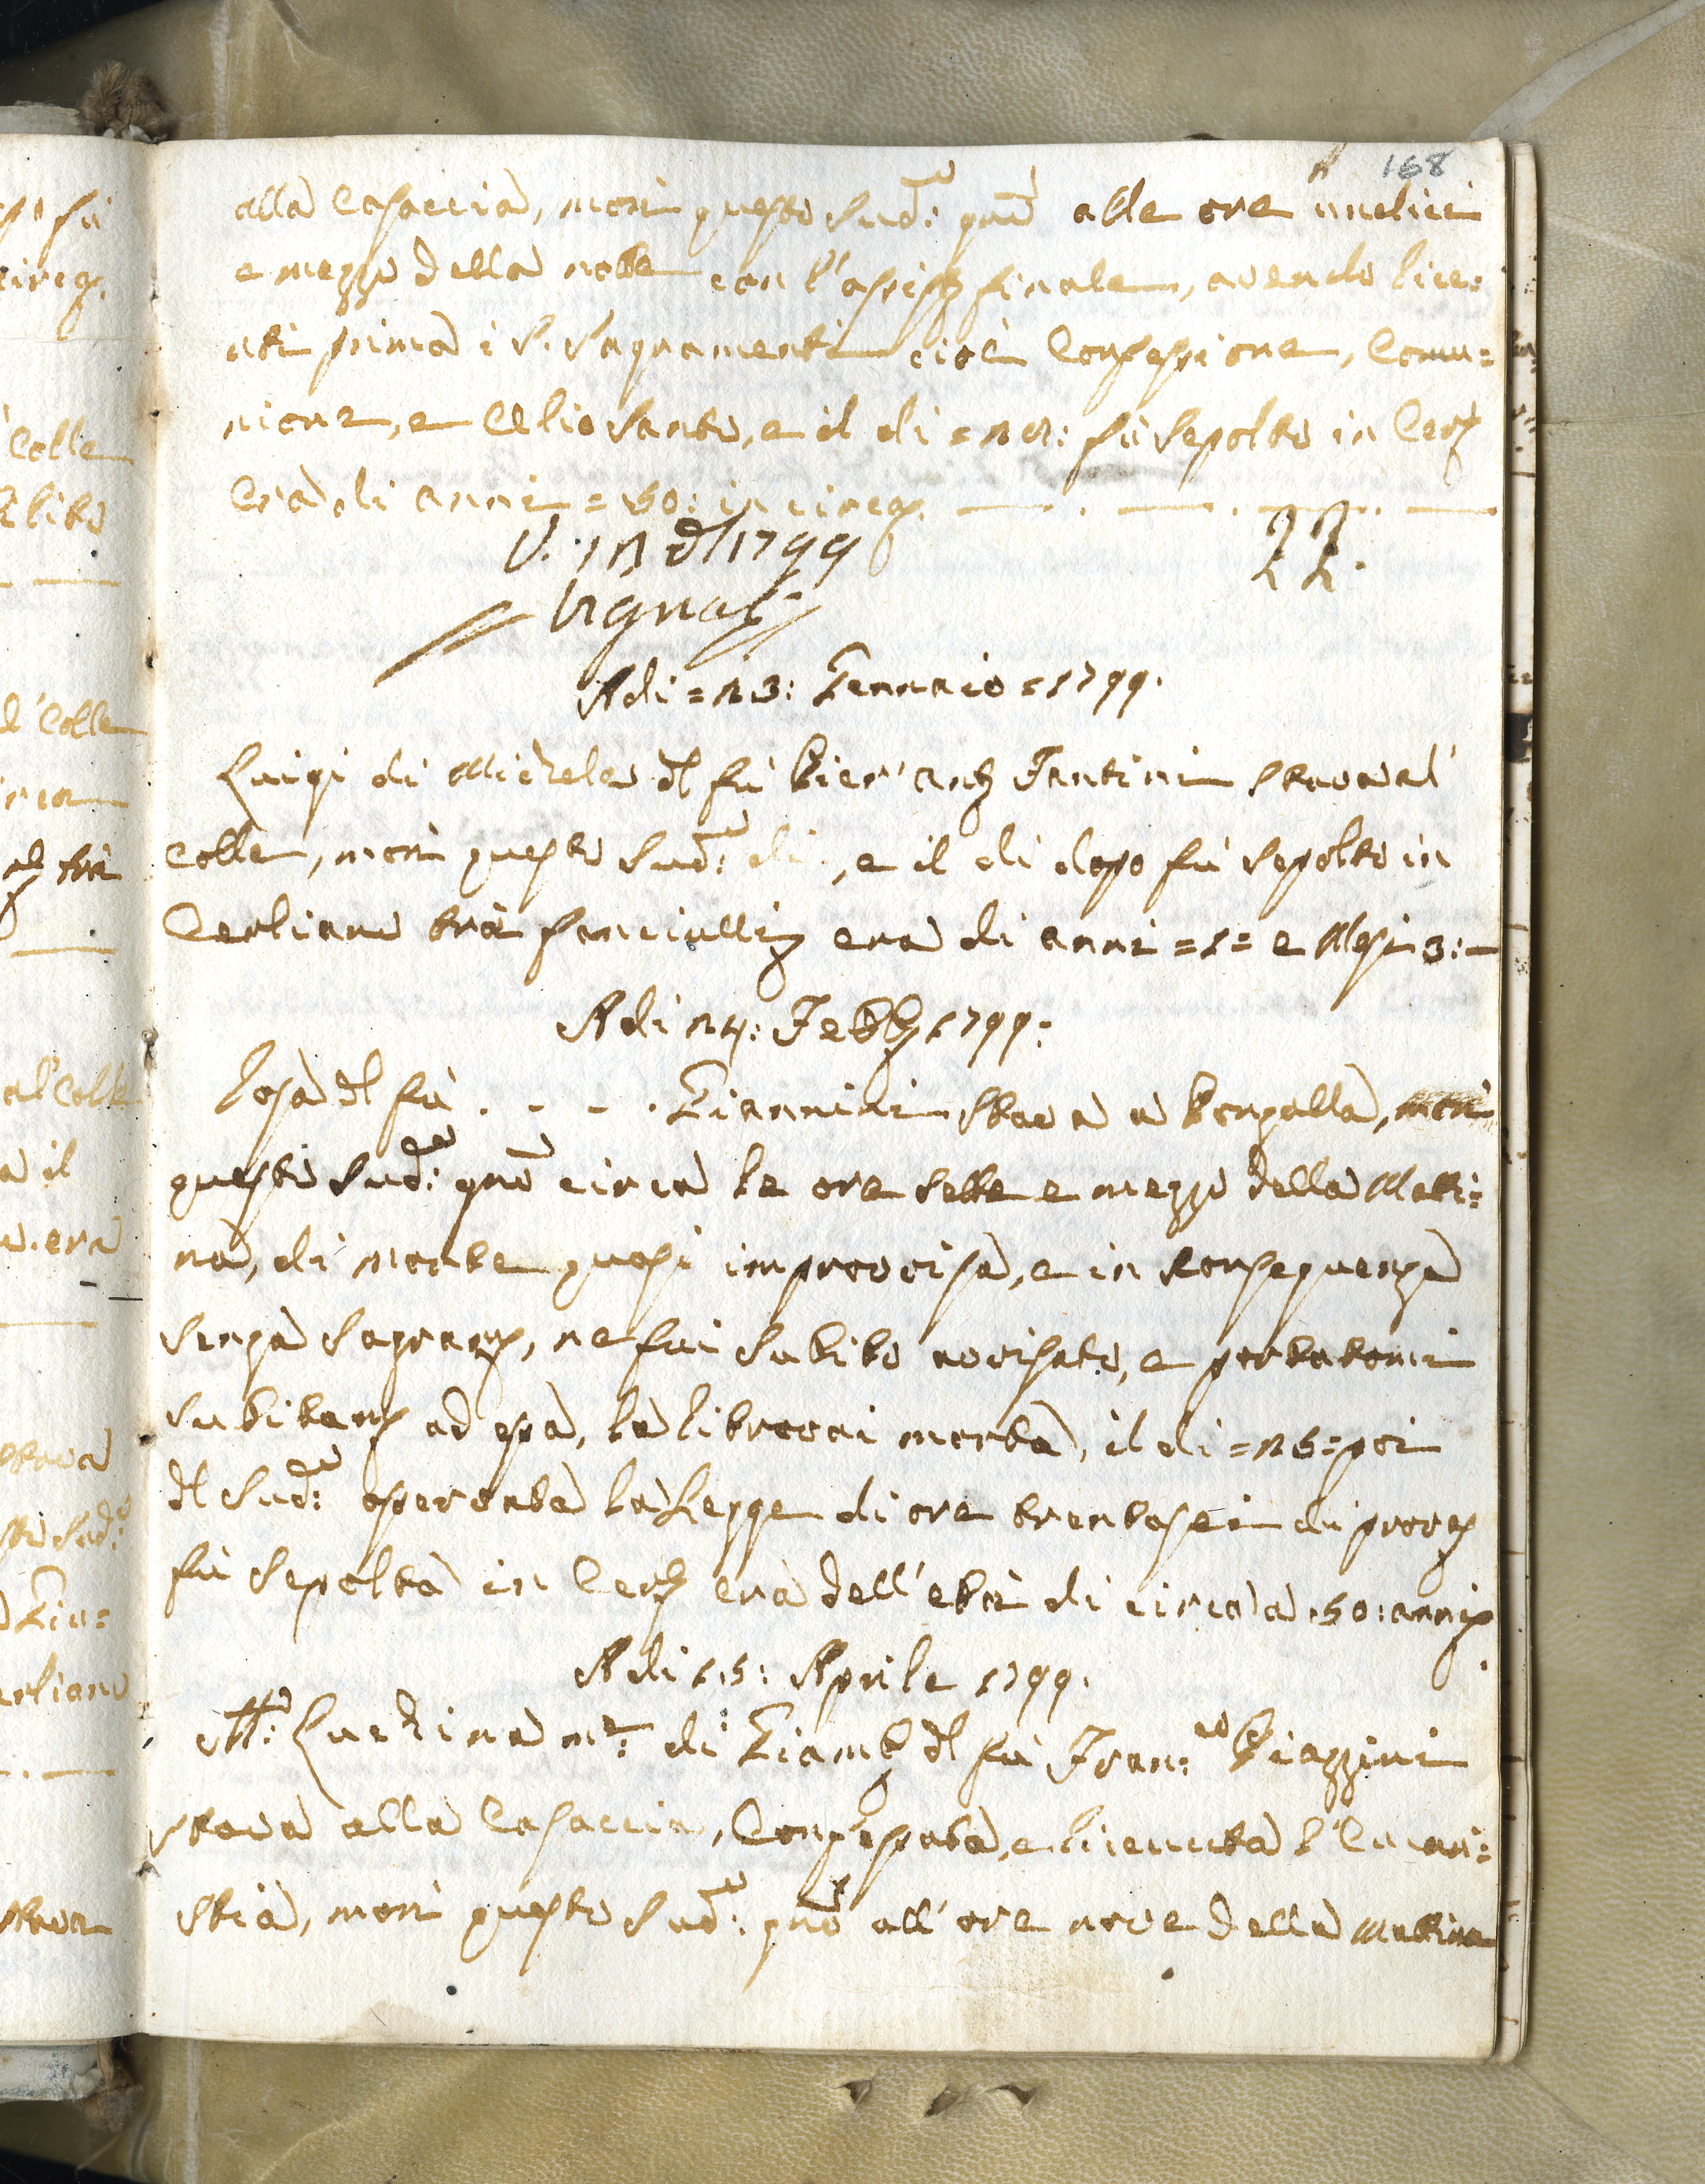 168
alla Casaccia, morì questo Sud:o gno alle ore undici
e mezzo della notte con l'assisza finale, avendo rice:
uti prima i S. Sagramenti cioè Confessione, Comu=
nione, e Olio Santo, e il di = 20: fù Sepolto in Cerza
Era di anni = 50: in circa.
V. in 1799
22.
Adi = 23: Gennaio = 1799.
Luigi di Michele dl fù Pier'Anto Fantini stava al
Colle, morì questo Sud:o di, e il di dopo fù Sepolto in
Cerliano trà fanciulli, era di anni = 1 = e Mesi 3: —
Adi 24: Febbo 1799:
Rosa dl fù . - - . Giannini stava a Borgalla, morì
questo Sud:o gno circa le ore sette e mezzo della Matti:
na, di morte quasi improvvisa, e in consequenza
senza Sagramti, ne fui subito avvisato, e portatomi
subitamte ad essa, la ritrovai morta, il di = 26 = poi
dl Sud:o osservata la Legge di ore trentasei di prova
fù Sepolta in Cerlo era dell'età di circa a 50: anni
Adi 15: Aprile 1799.
Ma: Luchina me: di Giamba dl fù Fran:co Biazzini
stava alla Casaccia, Confessata, e ricevuta l'Eucari:
stia, morì questo Sud:o gno all'ore nove della Mattina